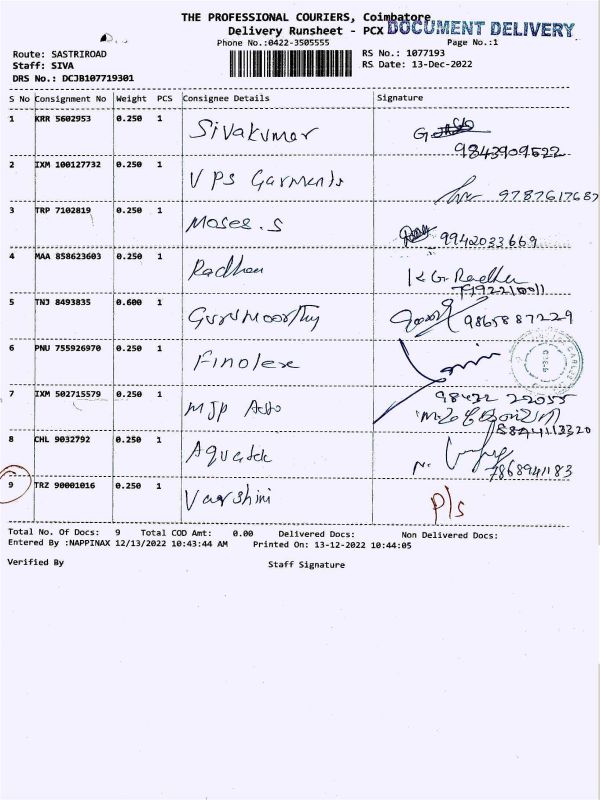 THE PROFESSIONAL COURIERS, Coimbatore
Delivery Runsheet - PCX DOCUMENT DELIVERY
Phone No.:0422-3505555 Page No.:1
Route: SASTRIROAD RS No.: 1077193
Staff: SIVA RS Date: 13-Dec-2022
DRS No.: DCJB107719301
S No Consignment No Weight PCS Consignee Details Signature
1 KRR 5602953 0.250 1 Sivakumar G
9843909522
2 IXM 100127732 0.250 1 VPS Garments 9787617687
3 TRP 7102819 0.250 1 Moses.S 9942033669
4 MAA 858623603 0.250 1 Radhan K G Radha
5 TNJ 8493835 0.600 1 Gurumoorthy 9865887229
6 PNU 755926970 0.250 1 Finolex
7 IXM 502715579 0.250 1 MJP 98422 22055
8 CHL 9032792 0.250 1 N. 7868941183
9 TRZ 90001016 0.250 1 Varshini P/s
Total No. Of Docs: 9 Total COD Amt: 0.00 Delivered Docs: Non Delivered Docs:
Entered By :NAPPINAX 12/13/2022 10:43:44 AM Printed On: 13-12-2022 10:44:05
Verified By Staff Signature